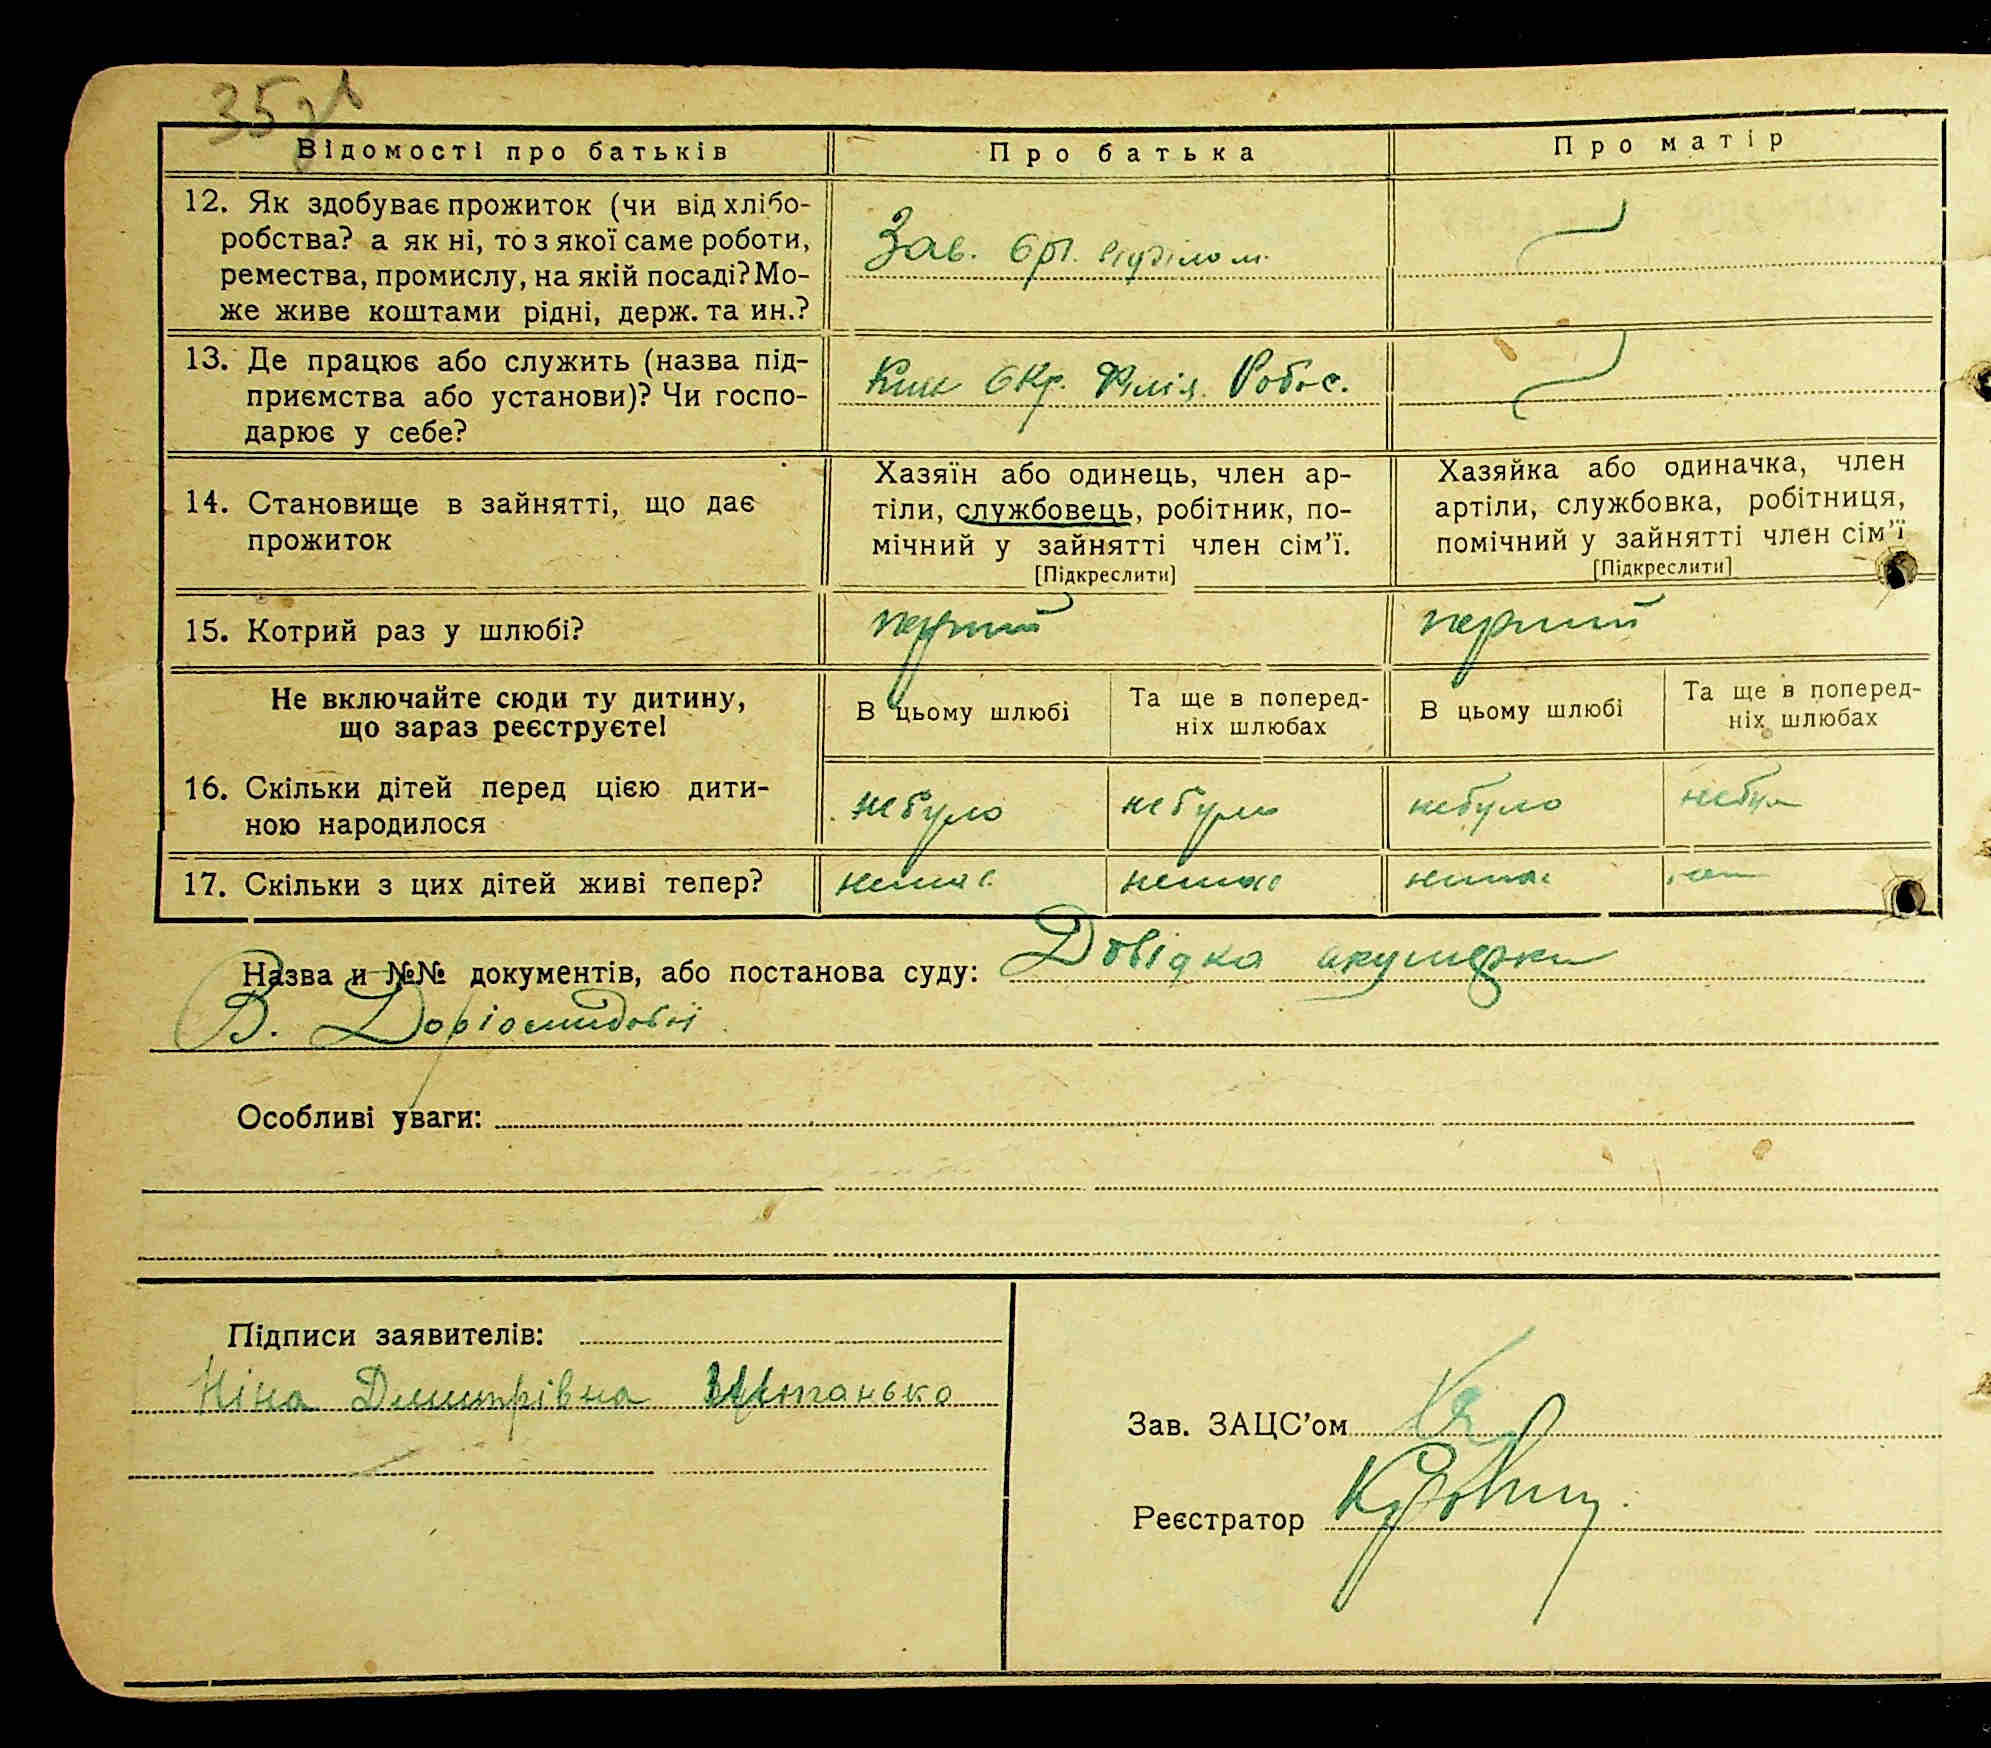 35
Відомості про батьків
Про батька
Про матір
12. Як здобуває прожиток (чи від хлібо-
робства? а як ні, то з якої саме роботи,
ремества, промислу, на якій посаді? Мо-
же живе коштами рідні, держ. та ин.?
Зав. відділом
13. Де працює або служить (назва під-
приємства або установи)? Чи госпо-
дарює у себе?
Окр. Філія Робос.
14. Становище в зайнятті, що дає
прожиток
Хазяїн або одинець, член ар-
тіли, службовець, робітник, по-
мічний у зайнятті член сім'ї.
[Підкреслити]
Хазяйка або одиначка, член
артіли, службовка, робітниця,
помічний у зайнятті член сім'ї
[Підкреслити]
15. Котрий раз у шлюбі?
перший
перший
Не включайте сюди ту дитину,
що зараз реєструєте!
В цьому шлюбі
Та ще в поперед-
ніх шлюбах
В цьому шлюбі
Та ще в поперед-
ніх шлюбах
16. Скільки дітей перед цією дити-
ною народилося
небуло
небуло
небуло
небуло
17. Скільки з цих дітей живі тепер?
немає
немає
немає
Назва и №№ документів, або постанова суду: Довідка акушерки
В.
Особливі уваги:
Підписи заявителів:
Ніна Дмитрівна
Зав. ЗАЦС'ом
Реєстратор